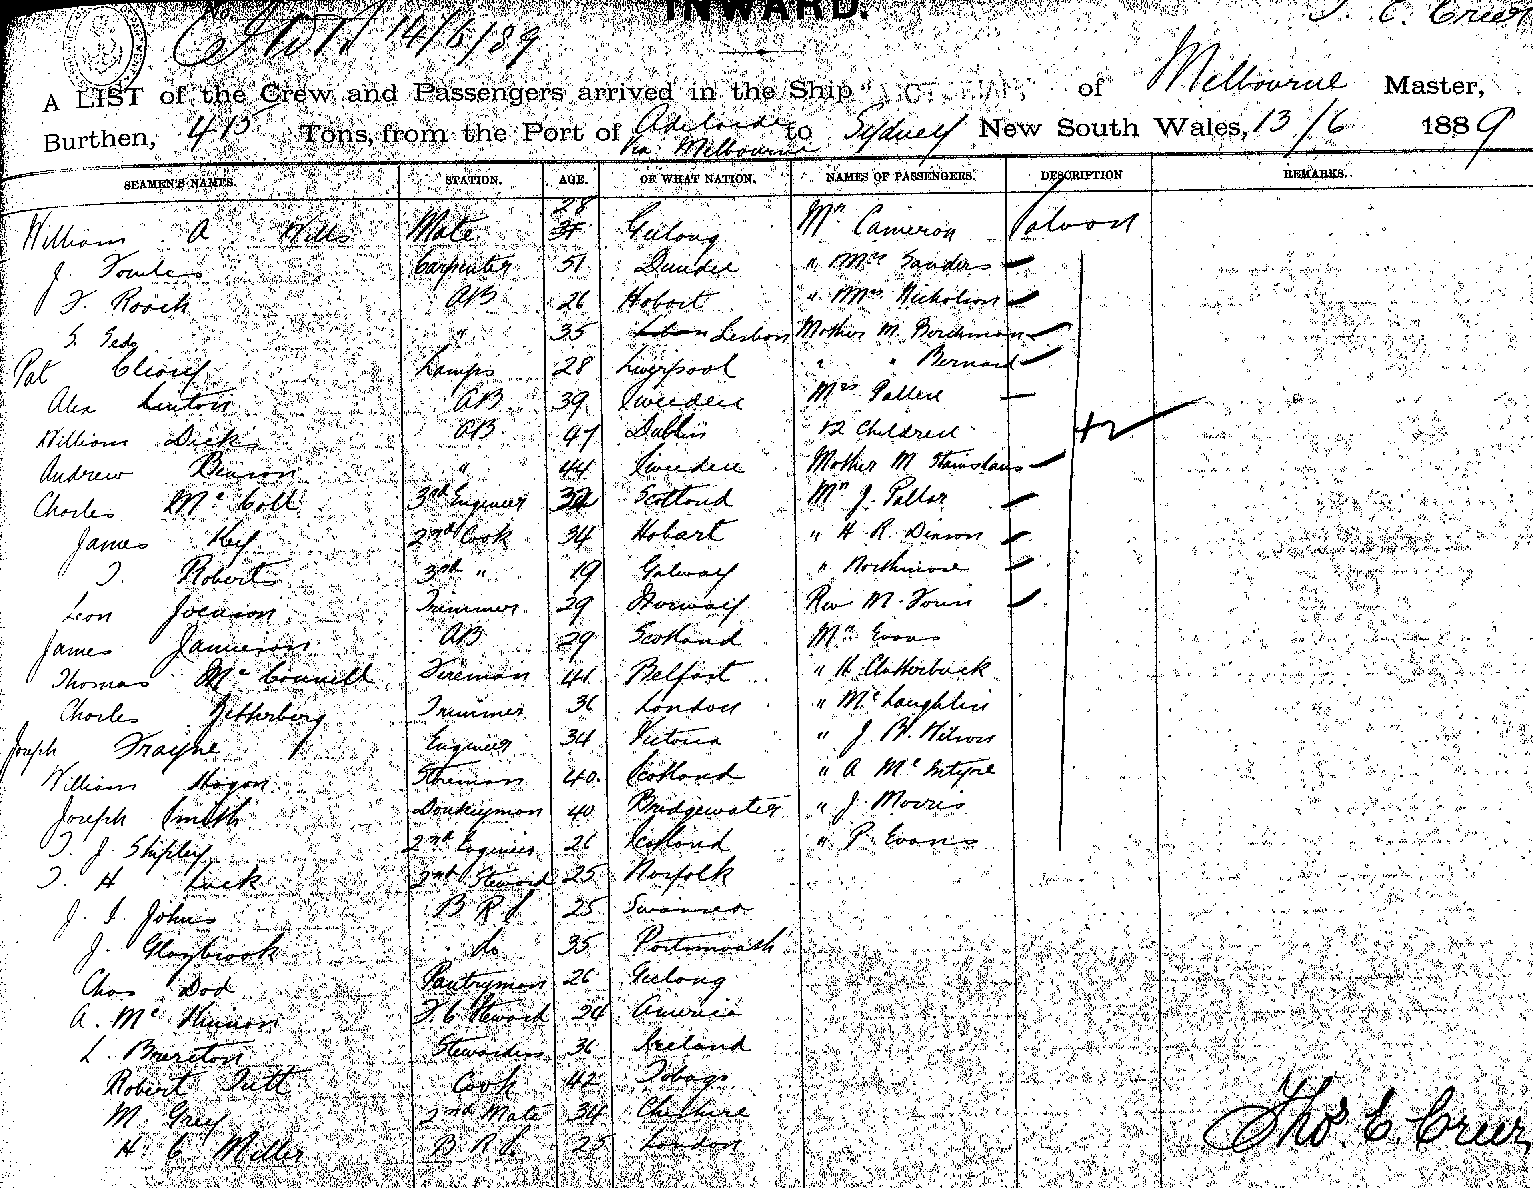 INWARD.
14/6/89
T. C. Creer
A LIST of the Crew and Passengers arrived in the Ship "VICTORIAN" of Melbourne Master,
Burthen, 415 Tons, from the Port of Adelaide via Melbourne to Sydney New South Wales, 13/6 1889
SEAMEN'S NAMES. STATION. AGE. OF WHAT NATION. NAMES OF PASSENGERS. DESCRIPTION REMARKS.
William A Wills Mate 28 Geelong Mr Cameron Saloon
J. Carpenter 51 Dundee " Mrs Sanders
T. Roach AB 26 Hobart " Mrs Nicholson
S. " 35 Lisbon Mother M.
Pat Cliory Lamps 28 Liverpool " " Bernard
Alex Linton AB 39 Mrs
William Dick AB 47 Dublin 12 Children
Andrew " 44 Mother M Stanislaus
Charles McColl 3rd Engineer Scotland Mr J. Pallar
James Key 2nd Cook 34 Hobart " H. R. Dixson
T. Roberts 3rd " 19 Galway " Northmore
Leon Trimmer 29 Norway Rev M.
James Jamieson AB 29 Scotland Mr Evans
Thomas McConnell Fireman 41 Belfast " H Clutterbuck
Charles Zetterberg Trimmer 36 London " McLaughlin
Joseph Trayne Engineer 34 Victoria " J. W. Wilson
William Hogan Fireman 40 Scotland " A McIntyre
Joseph Smith Donkeyman 40 Bridgewater " J. Morris
T. J. Shipley 2nd Engineer 26 Scotland " P. Evans
T. H Luck 2nd Steward 25 Norfolk
J. I. Johns B R S 25 Swansea
J. Glaybrook do 35 Portsmouth
Chas Dod Pantryman 26 Geelong
A. McKinnon F. C Steward 24 America
L. Brereton Stewardess 36 Ireland
Robert Tutt Cook 42 Tobago
M. Grey 2nd Mate 34 Cheshire
H. C Miller B R S 25 London
Thos. C. Creer